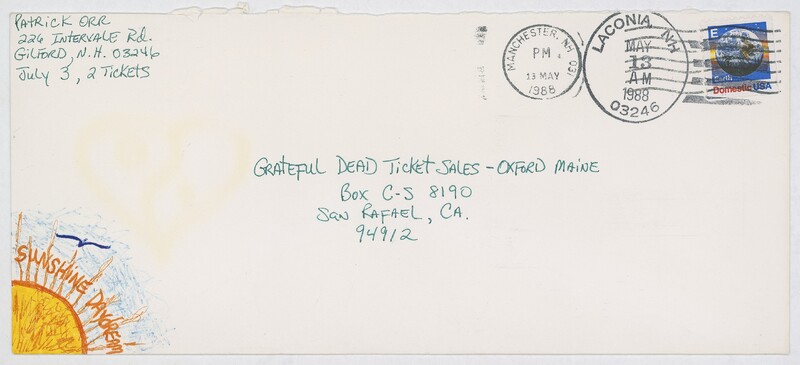 Patrick Orr
226 Intervale Rd.
Gilford, N.H. 03246
July 3, 2 Tickets
MANCHESTER, NH 031
PM
13 MAY
1988
LACONIA, NH
MAY
13
AM
1988
03246
E
Earth
Domestic USA
Grateful Dead Ticket Sales - Oxford Maine
Box C-S 8190
San Rafael, CA.
94912
SUNSHINE DAYDREAM